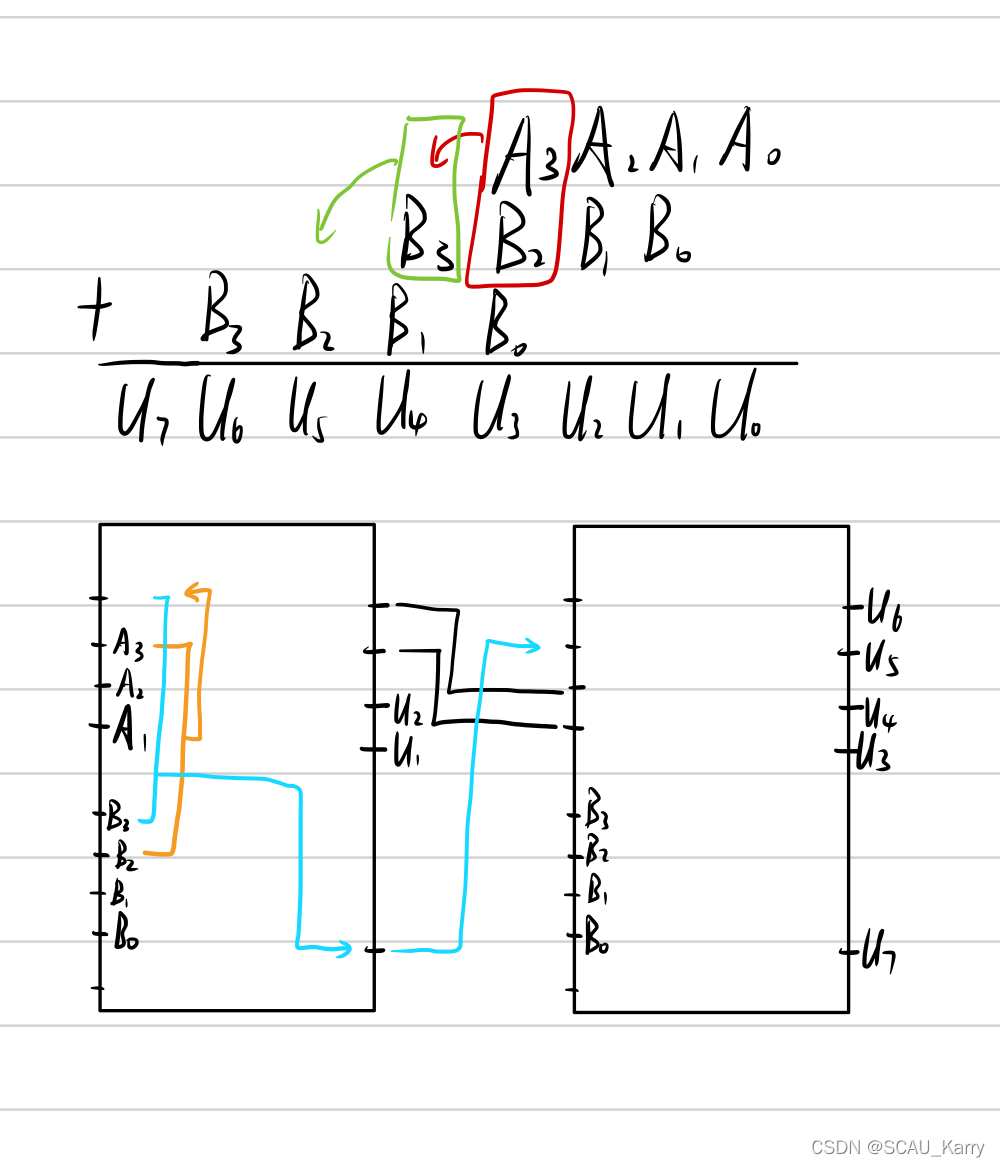 A₃ A₂ A₁ A₀
B₃ B₂ B₁ B₀
+ B₃ B₂ B₁ B₀
U₇ U₆ U₅ U₄ U₃ U₂ U₁ U₀
A₃
A₂
A₁
B₃
B₂
B₁
B₀
U₂
U₁
B₃
B₂
B₁
B₀
U₆
U₅
U₄
U₃
U₇
CSDN @SCAU_Karry